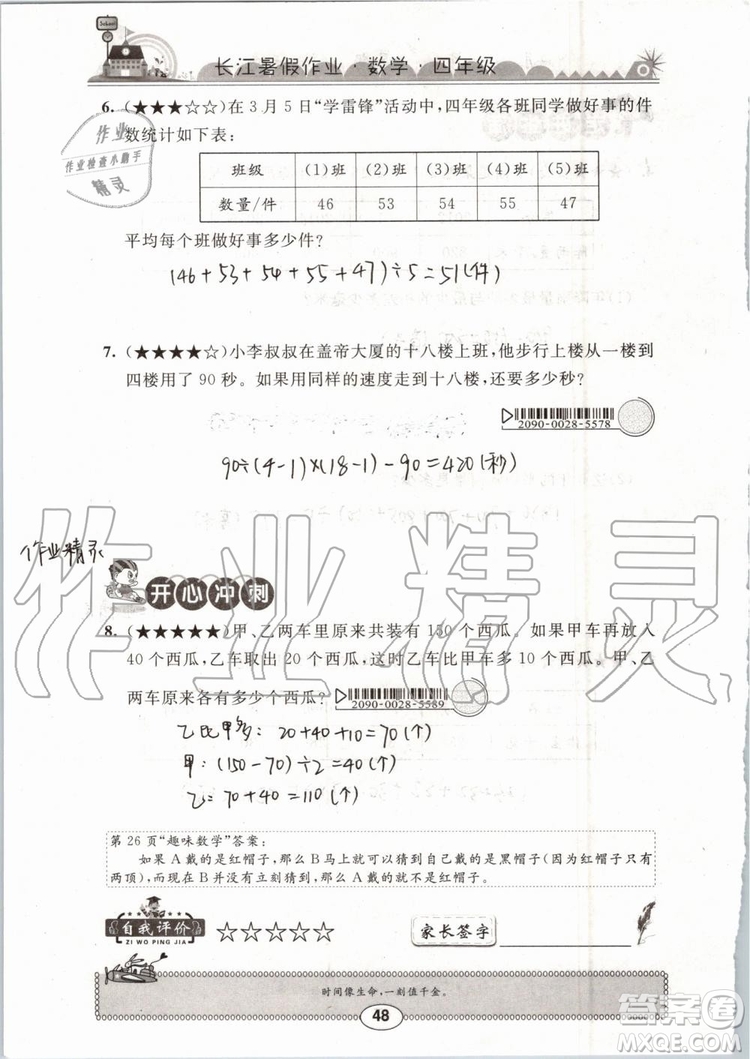 School
长江暑假作业·数学·四年级
6. (★★★☆☆)在3月5日“学雷锋”活动中,四年级各班同学做好事的件
数统计如下表:
作业
作业检查小助手
精灵
班级 (1)班 (2)班 (3)班 (4)班 (5)班
数量/件 46 53 54 55 47
平均每个班做好事多少件?
(46+53+54+55+47)÷5=51(件)
7. (★★★★☆)小李叔叔在盖帝大厦的十八楼上班,他步行上楼从一楼到
四楼用了90秒。如果用同样的速度走到十八楼,还要多少秒?
2090-0028-5578
90÷(4-1)×(18-1)-90=420(秒)
作业精灵
作业精灵
开心冲刺
8. (★★★★★)甲、乙两车里原来共装有150个西瓜。如果甲车再放入
40个西瓜,乙车取出20个西瓜,这时乙车比甲车多10个西瓜。甲、乙
两车原来各有多少个西瓜?
2090-0028-5589
乙比甲多:20+40+10=70(个)
甲:(150-70)÷2=40(个)
乙:70+40=110(个)
第26页“趣味数学”答案:
如果A戴的是红帽子,那么B马上就可以猜到自己戴的是黑帽子(因为红帽子只有
两顶),而现在B并没有立刻猜到,那么A戴的不是红帽子。
自我评价
ZI WO PING JIA
☆☆☆☆☆
家长签字
时间像生命,一刻值千金。
48
答案圈
MXQE.COM